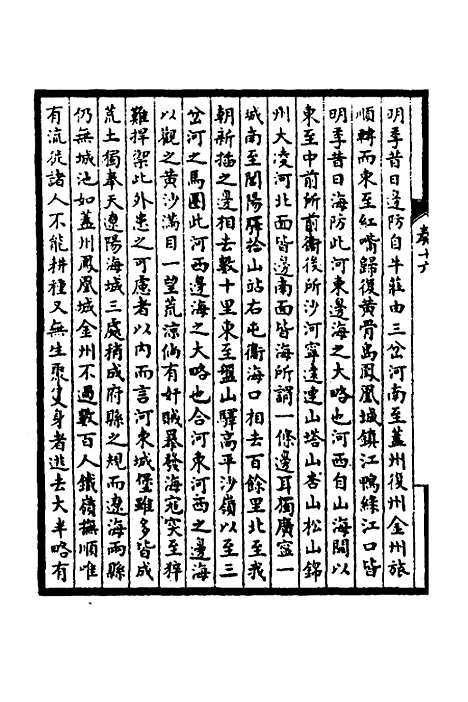 明季昔日邊防自牛莊由三岔河南至蓋州復州金州旅
順轉而東至紅嘴歸復黃骨島鳳凰城鎮江鴨綠江口皆
明季昔日海防此河東邊海之大略也河西自山海關以
東至中前所前衛後所沙河寧遠連山塔山杏山松山錦
州大凌河北面皆邊南面皆海所謂一條邊耳獨廣寧一
城南至閭陽驛拾山站右屯衛海口相去百餘里北至我
朝新插之邊相去數十里東至盤山驛高平沙嶺以至三
岔河之馬圈此河西邊海之大略也合河東河西之邊海
以觀之黃沙滿目一望荒涼倘有奸賊暴發海寇突至猝
難捍禦此外患之可慮者以內而言河東城堡雖多皆成
荒土獨奉天遼陽海城三處稍成府縣之規而遼海兩縣
仍無城池如蓋州鳳凰城金州不過數百人鐵嶺撫順唯
有流徙諸人不能耕種又無生聚隻身者逃去大半略有
卷十六